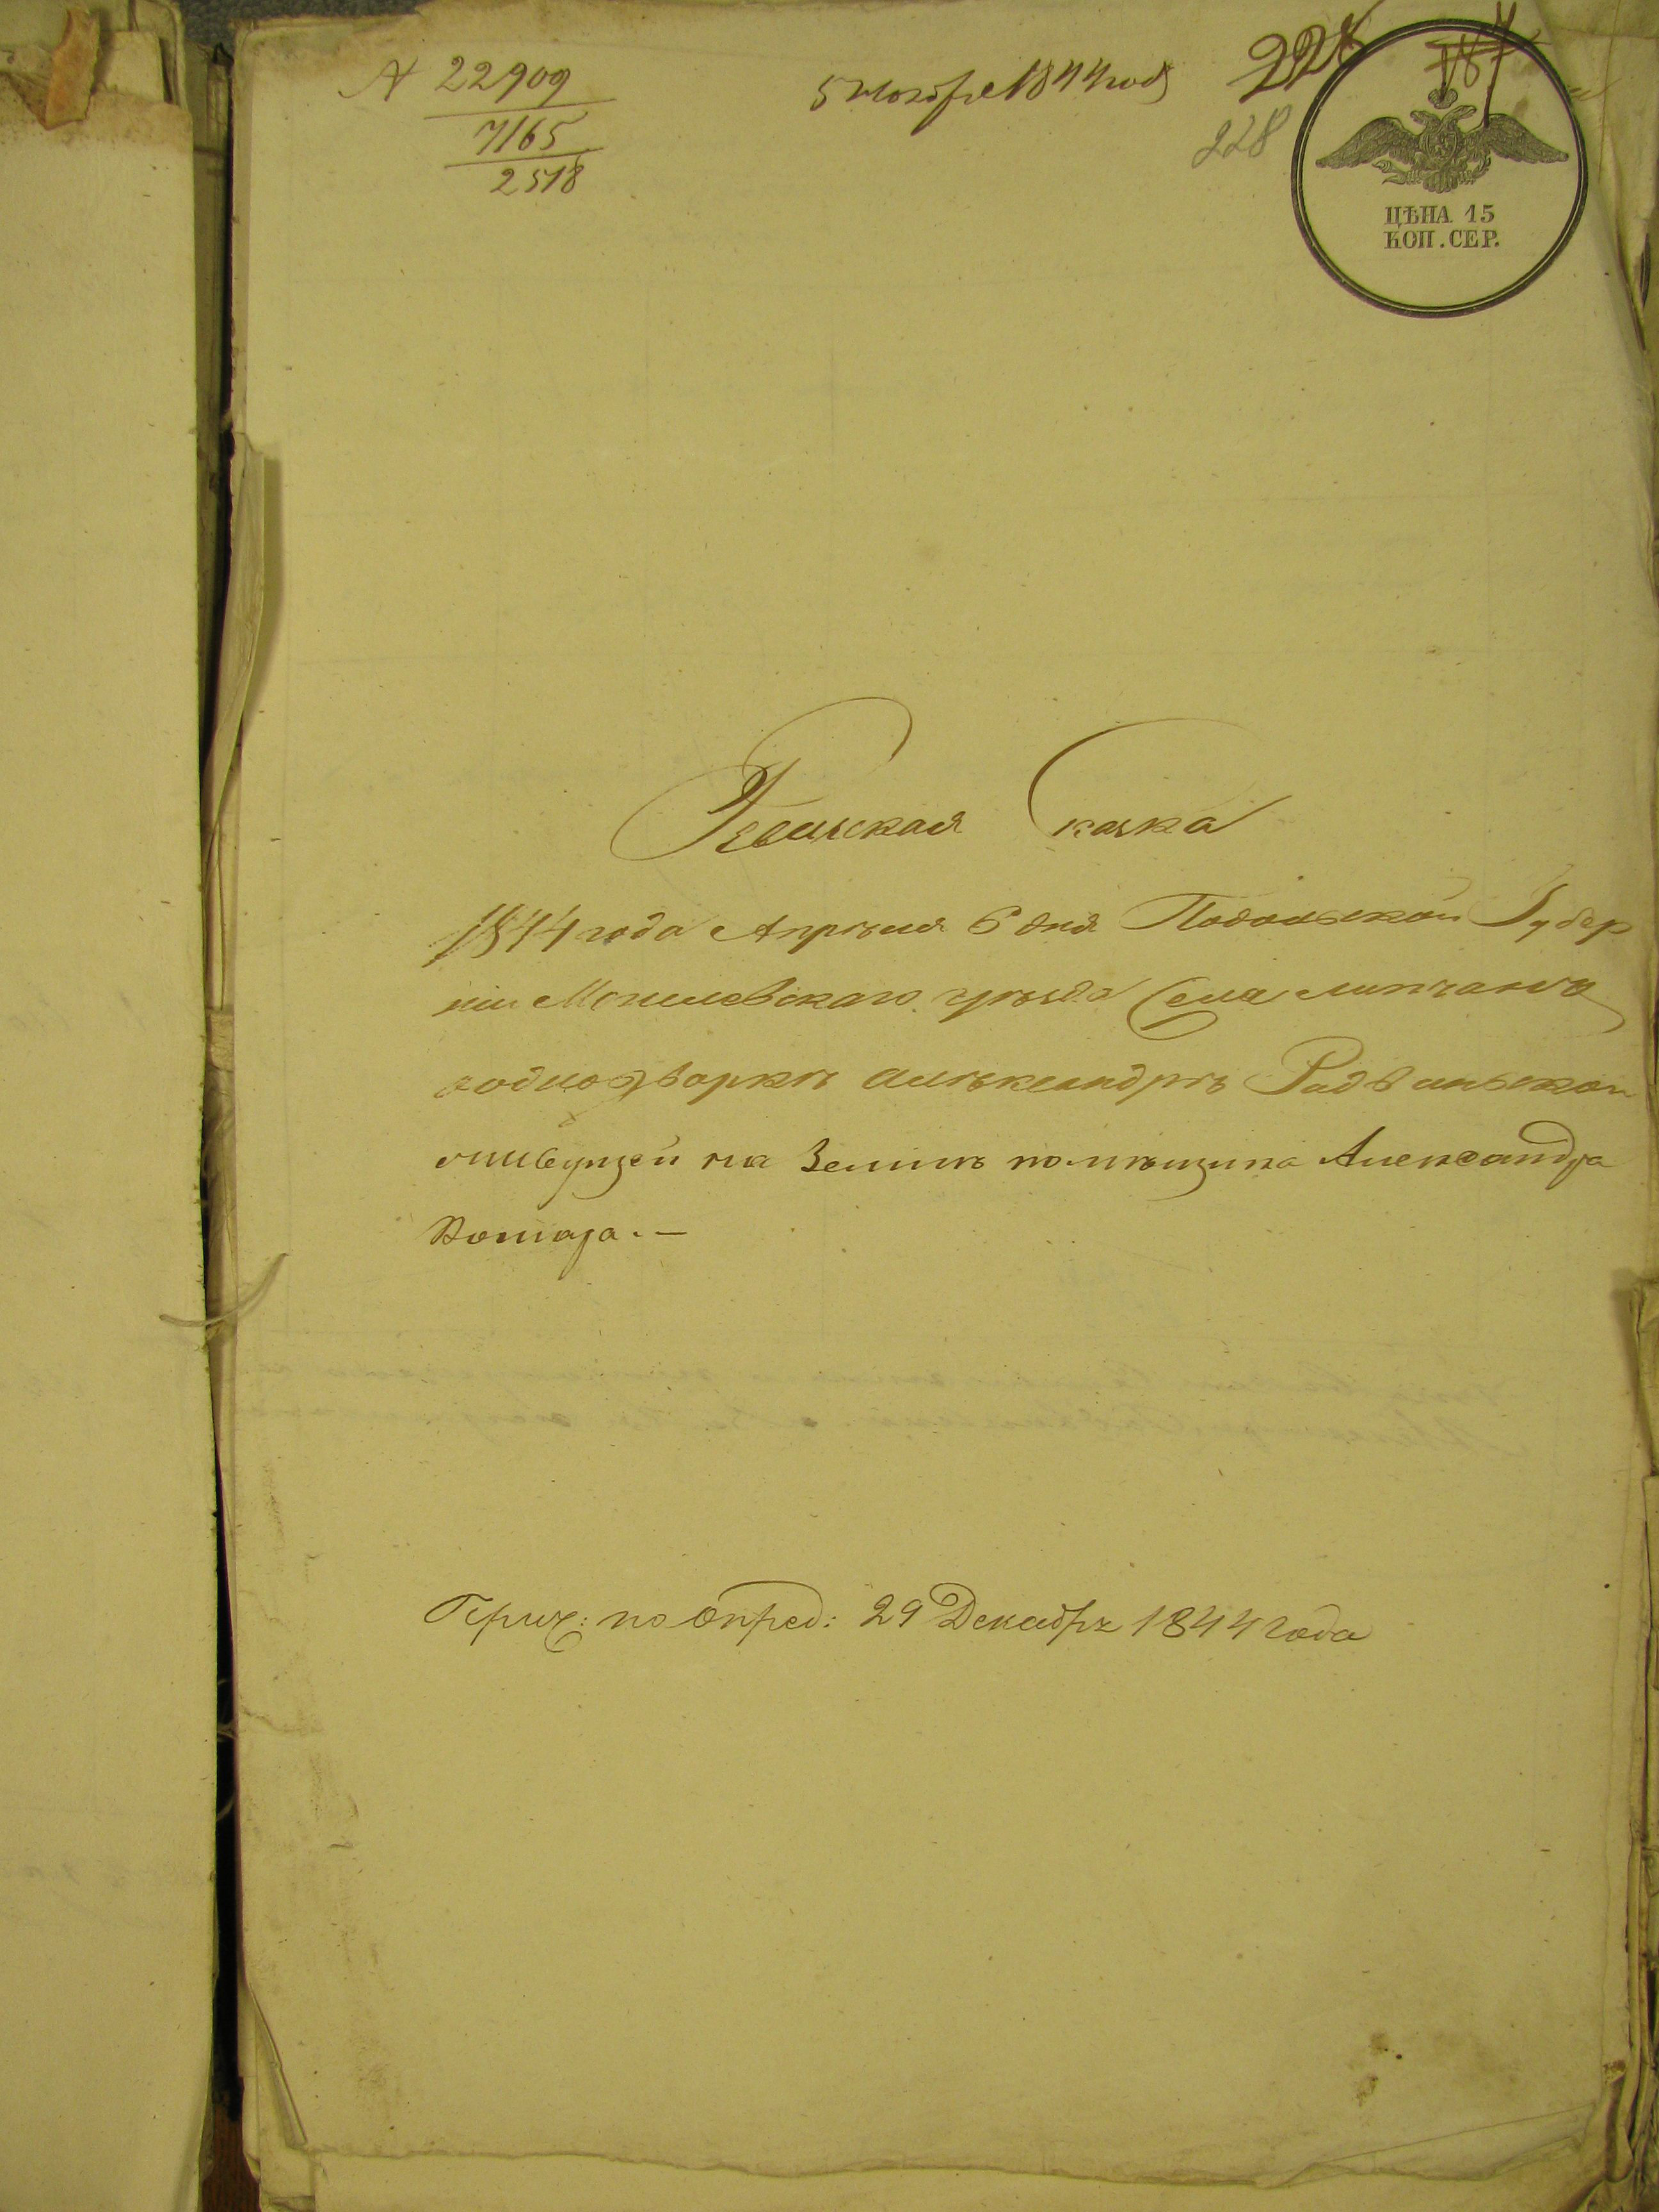 № 22909
7165
2518
5 Ноября 1844 года
228
ЦѢНА 15
КОП. СЕР.
Ревизская Скаска
1844 года Апрѣля 6 дня Подольской Губер
ніи Могилевскаго уѣзда Села
о однодворкѣ Алѣксандрѣ Радванской
живущей на Землѣ помѣщика Александра
Комара. —
Перич: по опред: 29 Декабря 1844 года